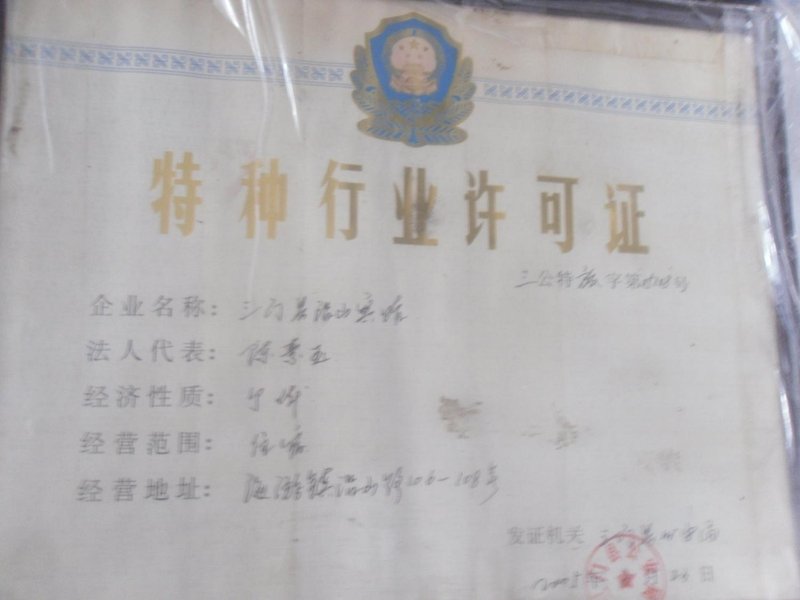 特种行业许可证
三公特旅字第号
企业名称：三门县山宾馆
法人代表：陈
经济性质：个体
经营范围：住宿
经营地址：海游镇山路106-108号
发证机关 三门县公安局
2005年 日